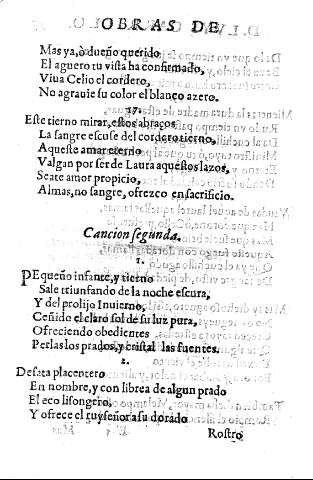 OBRAS DE
Mas ya, ò dueño querido
El aguero tu vista ha confirmado,
Viua Celio el cordero,
No agrauie su color el blanco azero.
17.
Este tierno mirar, estos abraços
La sangre escuse del cordero tierno,
Aqueste amar eterno
Valgan por ser de Laura aquestos lazos,
Seate amor propicio,
Almas, no sangre, ofrezco en sacrificio.
Cancion segunda.
1.
PEqueño infante, y tierno
Sale triunfando de la noche escura,
Y del prolijo Inuierno,
Ceñido el claro sol de su luz pura,
Ofreciendo obedientes
Perlas los prados, y cristal las fuentes.
2.
Desata placentero
En nombre, y con librea de algun prado
El eco lisongero,
Y ofrece el ruyseñor a su dorado
Rostro